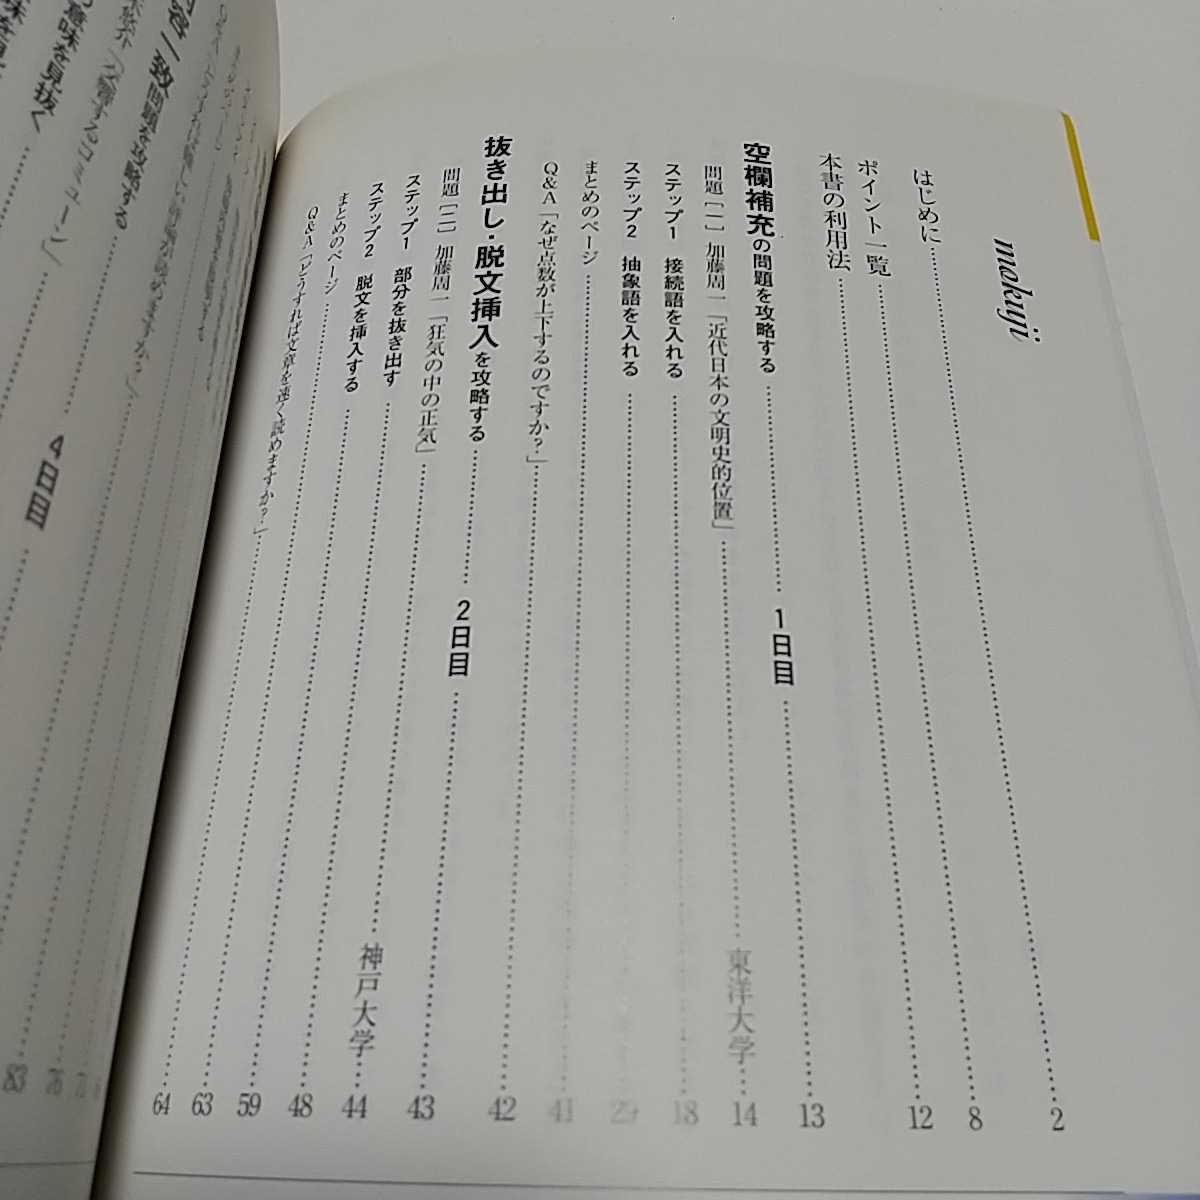 mokuji
はじめに……2
ポイント一覧……8
本書の利用法……12
空欄補充の問題を攻略する……1日目……13
問題〔一〕 加藤周一「近代日本の文明史的位置」……東洋大学……14
ステップ1 接続語を入れる……18
ステップ2 抽象語を入れる……29
まとめのページ……41
Q&A「なぜ点数が上下するのですか?」……42
抜き出し・脱文挿入を攻略する……2日目……43
問題〔二〕 加藤周一「狂気の中の正気」……神戸大学……44
ステップ1 部分を抜き出す……48
ステップ2 脱文を挿入する……59
まとめのページ……63
Q&A「どうすれば文章を速く読めますか?」……64
容一致問題を攻略する……4日目
交響するコミューン」
意味を見抜く……
76
83